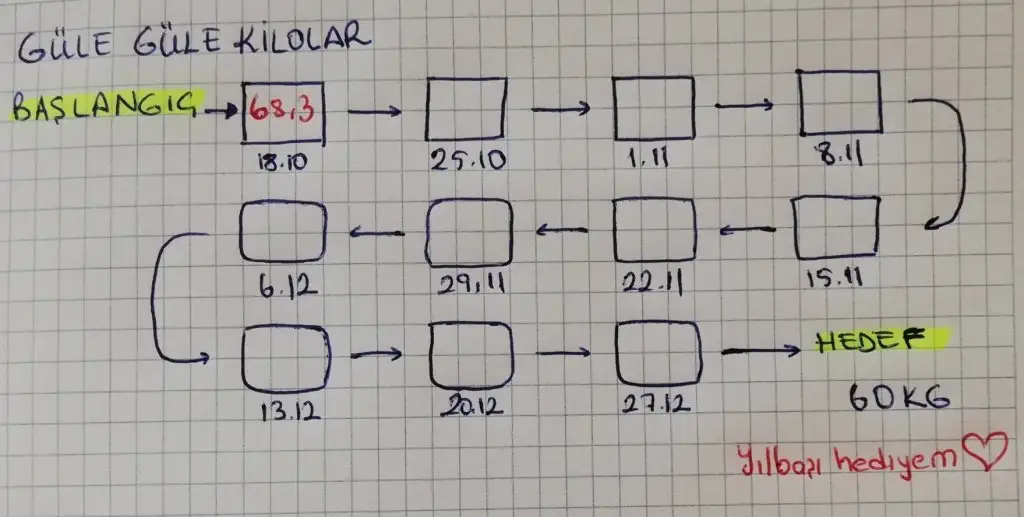 GÜLE GÜLE KİLOLAR
BAŞLANGIÇ → 68,3 → → →
18.10 25.10 1.11 8.11
← ← ←
6.12 29.11 22.11 15.11
→ → → HEDEF
13.12 20.12 27.12 60KG
Yılbaşı hediyem ♡